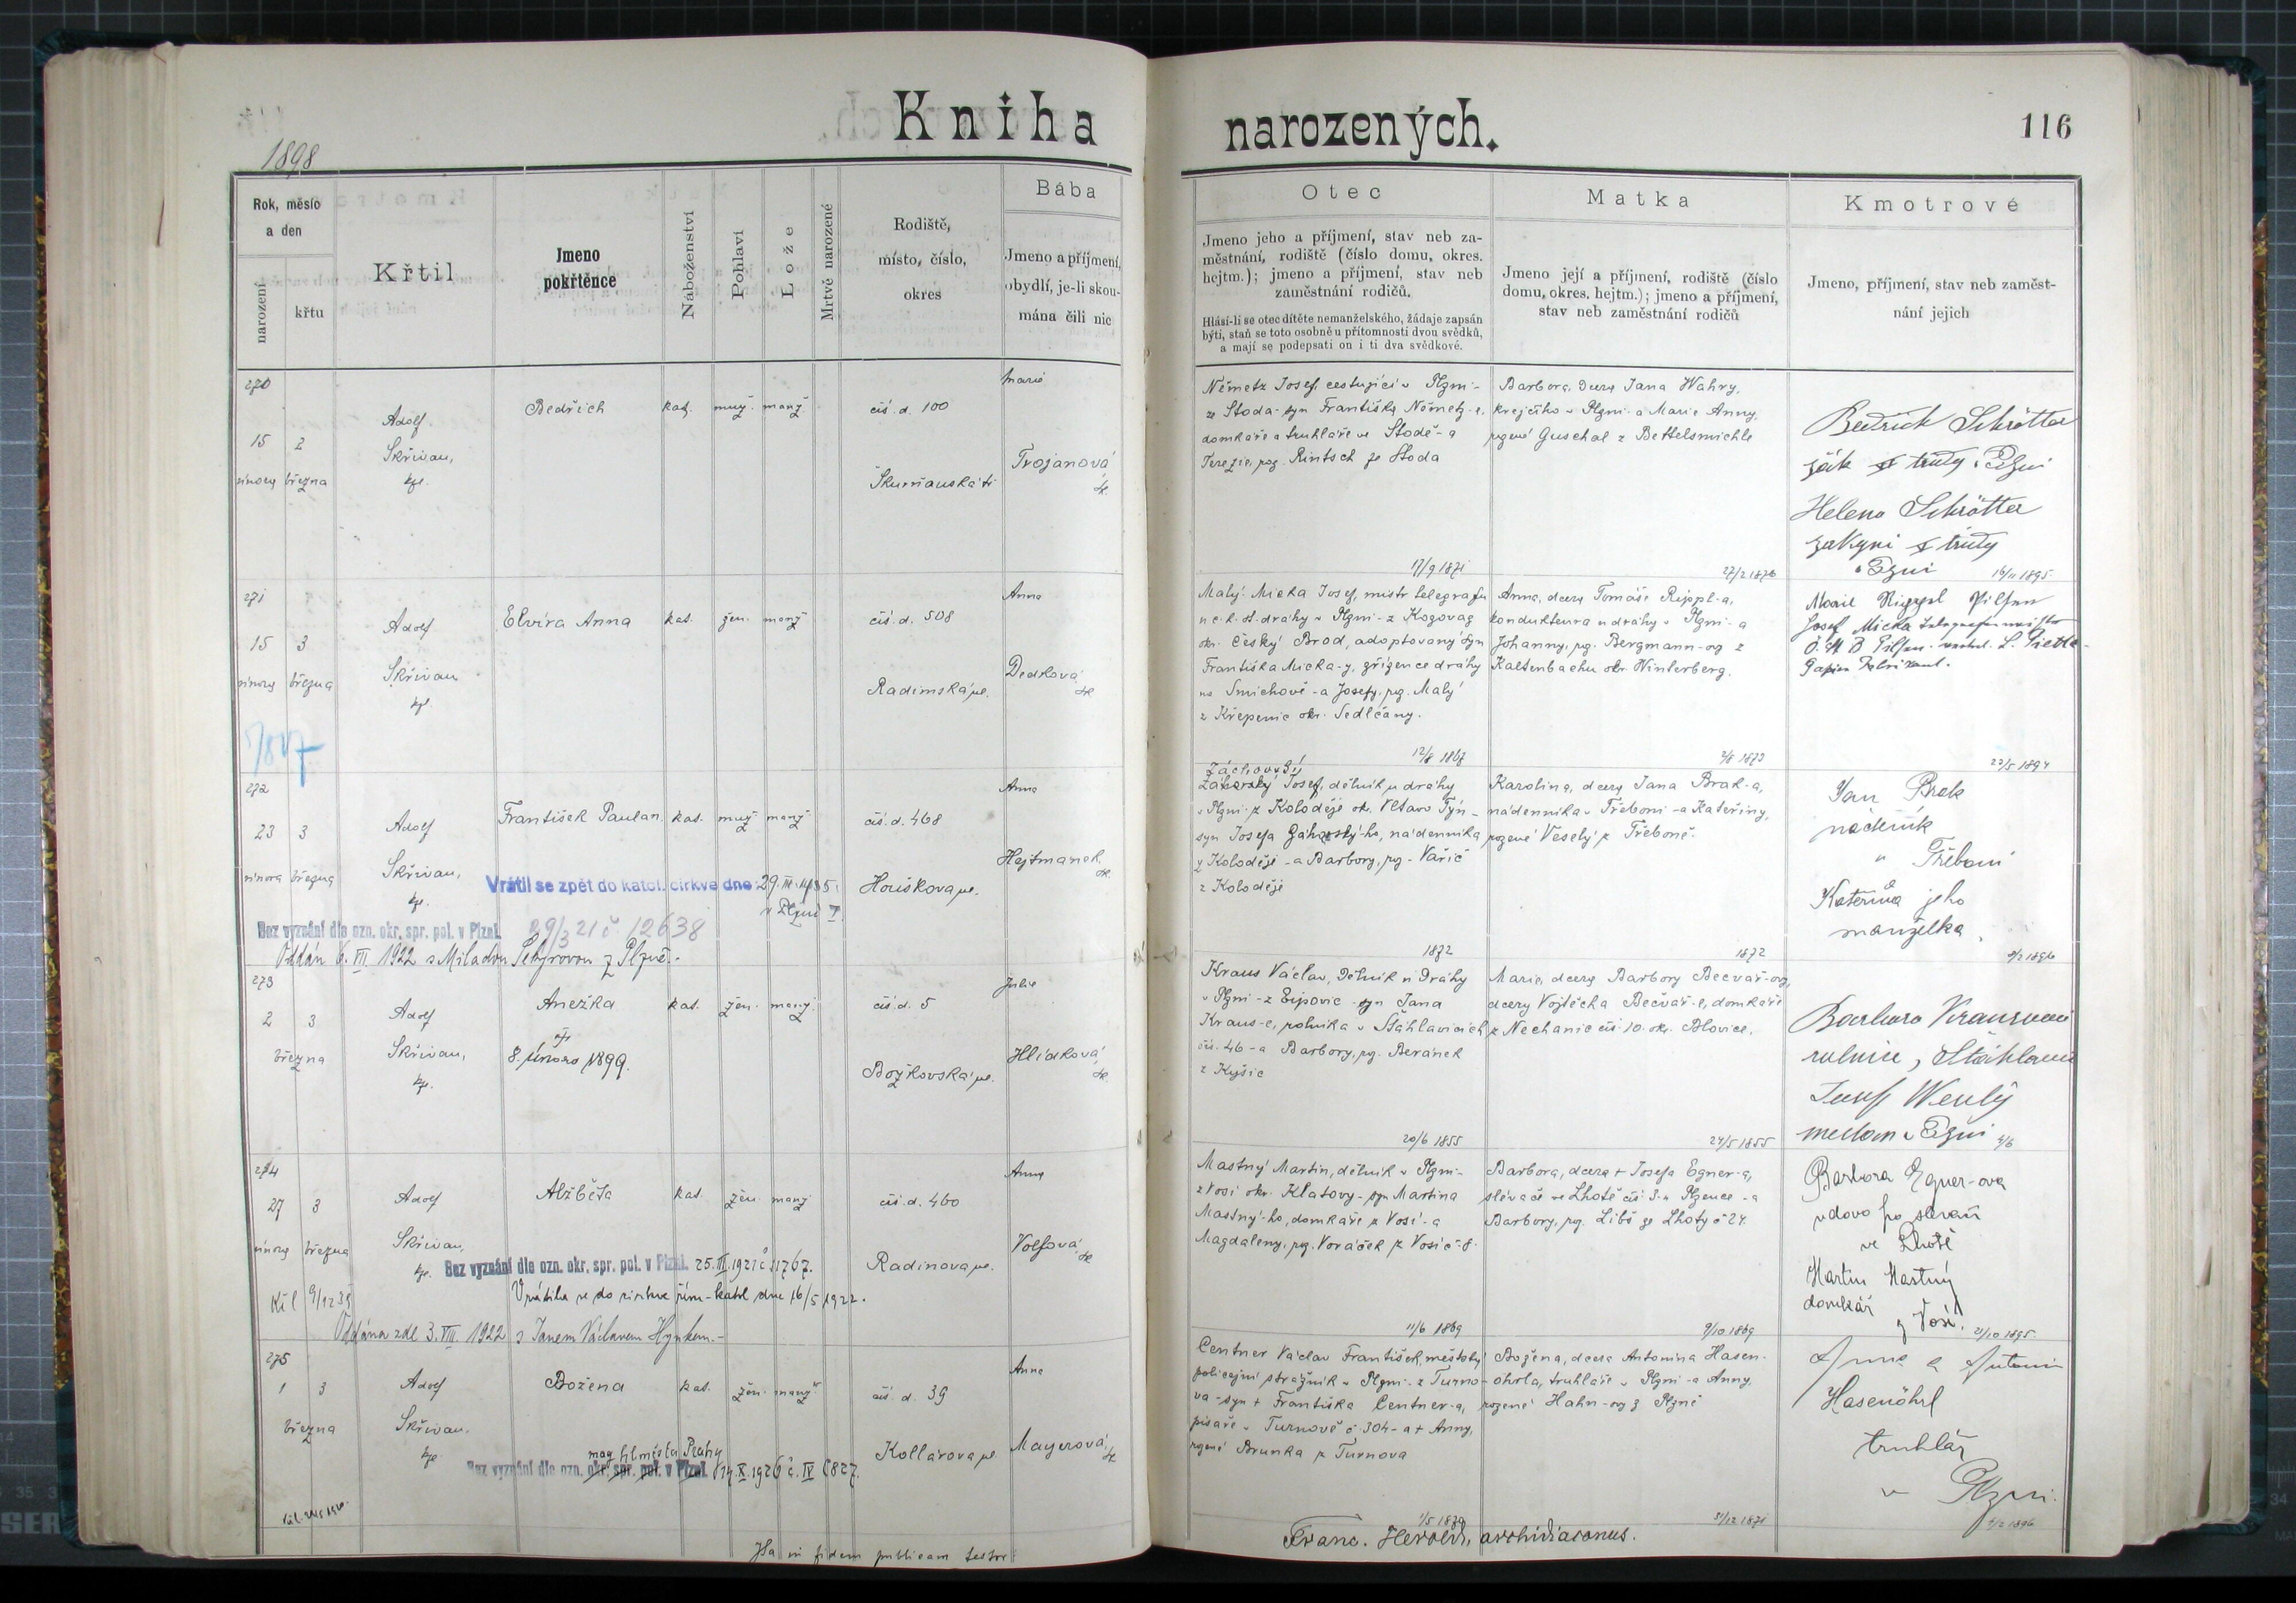 Kniha narozených.
116
1898
Rok, měsíc a den
narození
křtu
Křtil
Jmeno pokřtěnce
Náboženství
Pohlaví
Lože
Mrtvě narozené
Rodiště, místo, číslo, okres
Bába
Jmeno a příjmení, obydlí, je-li skoumána čili nic
Otec
Jmeno jeho a příjmení, stav neb za-
městnání, rodiště (číslo domu, okres.
hejtm.); jmeno a příjmení, stav neb
zaměstnání rodičů.
Hlásí-li se otec dítěte nemanželského, žádaje zapsán
býti, staň se toto osobně u přítomnosti dvou svědků,
a mají se podepsati on i ti dva svědkové.
Matka
Jmeno její a příjmení, rodiště (číslo
domu, okres. hejtm.); jmeno a příjmení,
stav neb zaměstnání rodičů
Kmotrové
Jmeno, příjmení, stav neb zaměst-
nání jejich
270
15 2
února března
Adolf
Skřivan,
kpl.
Bedřich
kat. muž. manž.
čís. d. 100
Marie
Trojanová
Němetz Josef, cestující v Plzni-
ze Stoda- syn Františka Němetz-e,
domkáře a truhláře ve Stodě- a
Terezie, roz. Rintsch ze Stoda
17/9 1871
Barbora, dcera Jana Wahry,
krejčího v Plzni- a Marie Anny,
rozené Guschal z Bettelsmichle
27/2 1876
Bedřich Schrötter
žák
Helena Schrötter
16/11 1895
271
15 3
února března
Adolf
Skřivan
kpl.
Elvíra Anna
kat. žen. manž
čís. d. 508
Radimská ul.
Anna
Dedková
Malý- Micka Josef, mistr telegrafu
u c. k. st. dráhy v Plzni- z Kozovaz
okr. Český Brod, adoptovaný syn
Františka Micka-y, zřízence dráhy
na Smíchově -a Josefy, roz. Malý
z Křepenic okr. Sedlčany.
12/8 1867
Anna, dcera Tomáše Rippl-a,
kondukteura u dráhy v Plzni- a
Johanny, roz. Bergmann-ov z
Kaltenbachu okr. Winterberg.
2/8 1873
Marie Rippl Pilsen
Josef Micka
23/5 1897
272
23 3
února března
Adolf
Skřivan,
kpl.
František Paulan.
kat. muž manž
čís. d. 468
Houškova ul.
Anna
Hejtmanek
Vrátil se zpět do katol. církve dne 29. III. 1935
v Plzni I.
Bez vyznání dle ozn. okr. spr. pol. v Plzni. 29/3 21 č. 12638
Oddán 6. VII 1922 s Miladou Petyrovou z Plzně.-
Záhorský Josef, dělník u dráhy
v Plzni- z Koloděje ok. Vltavo Týn-
syn Josefa Záhorský-ho, nádenníka
z Koloděje -a Barbory, roz- Vařič
z Koloděje
1872
Karolina, dcera Jana Brak-a,
nádenníka v Třeboni -a Kateřiny,
rozené Veselý z Třeboně.
1872
Jan Brak
nádeník
v Třeboni
Kateřina jeho
manželka
9/2 1896
273
2 3
března
Adolf
Skřivan,
kpl.
Anežka
8. února 1899.
kat. žen. manž.
čís. d. 5
Božkovská ul.
Julie
Hlídková
Kraus Václav, dělník u dráhy
v Plzni -z Ejpovic -syn Jana
Kraus-e, rolníka v Šťáhlavicích
čís. 46 -a Barbory, roz. Beránek
z Kyšic
20/6 1855
Marie, dcera Barbory Becvář-ov,
dcery Vojtěcha Bečvář-e, domkáře
z Nechanic čís. 10. okr. Blovice.
24/5 1855
Barbora Krausová
Josef Weselý
274
27 3
února března
Adolf
Skřivan,
kpl.
Alžběta
kat. žen manž
čís. d. 460
Radinova ul.
Anna
Volfová
Bez vyznání dle ozn. okr. spr. pol. v Plzni. 25. III. 1921 č. 11767.
Vrátila se do církve řím-katol dne 16/5 1922.
Oddána zde 3. VIII 1922 s Janem Václavem Hynkem.-
Mastný Martin, dělník v Plzni-
z Vosí okr. Klatovy- syn Martina
Mastný-ho, domkáře z Vosí -a
Magdaleny, roz. Voráček z Vosí č. 8.
11/6 1869
Barbora, dcera + Josefa Egner-a,
slévače ve Lhotě čís 3. u Plzence -a
Barbory, roz. Libš ze Lhoty č 24.
9/10 1869
Barbora Egner-ova
vdova po slevači
ve Lhotě
Martin Mastný
domkář
z Vosí.
21/10 1895.
275
1 3
března
Adolf
Skřivan.
kpl
Božena
kat. žen. manž
čís. d. 39
Kollárova ul.
Anna
Mayerová
mag hl města Prahy
Bez vyznání dle ozn. okr. spr. pol. v Plzni.
Centner Václav František, městský
policejní strážník v Plzni- z Turno-
va -syn + Františka Centner-a,
písaře v Turnově č. 304- a + Anny,
rozené Brunka z Turnova
1/5 1870
Božena, dcera Antonína Hasen-
öhrla, truhláře v Plzni -a Anny,
rozené Hahn-ov z Plzně
31/12 1871
Anna a Antonin
Hasenöhrl
truhlář
v Plzni.
4/2 1896
Ita in fidem publicam testor:
Franc. Herold, archidiaconus.